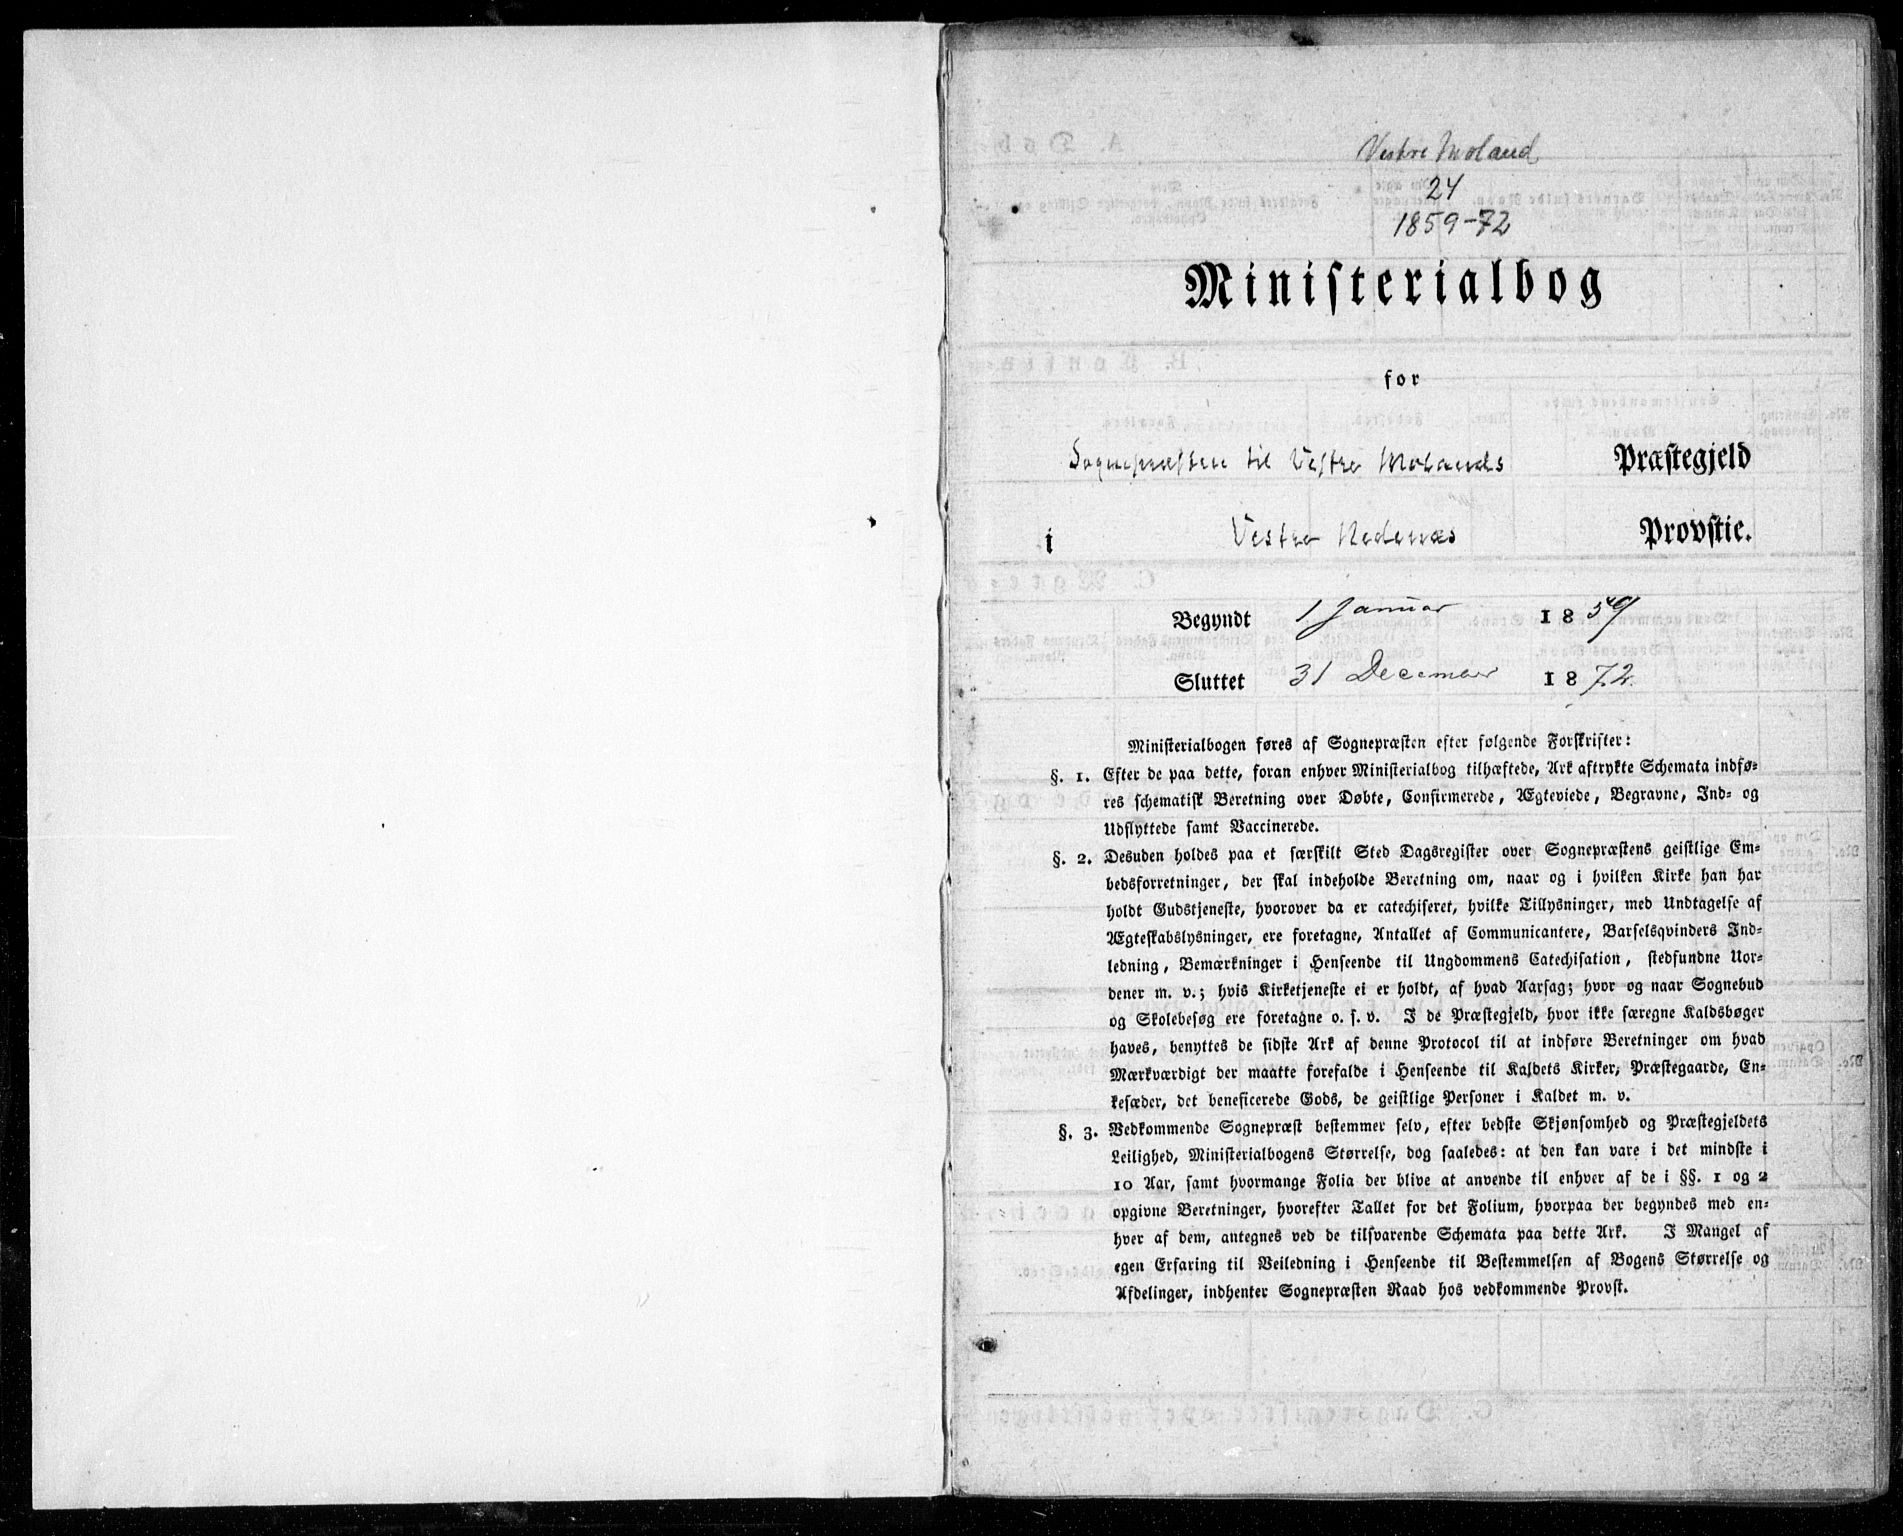 Vestre Moland
24
1859-72
Ministerialbog
for
Sognepræsten til Vestre Molands Præstegjeld
i Vestre Nedenæs Provstie.
Begyndt 1 Januar 1859
Sluttet 31 December 1872.
Ministerialbogen føres af Sognepræsten efter følgende Forskrifter:
§. 1. Efter de paa dette, foran enhver Ministerialbog tilhæftede, Ark aftrykte Schemata indfø-
res schematisk Beretning over Døbte, Confirmerede, Ægteviede, Begravne, Ind- og
Udflyttede samt Vaccinerede.
§. 2. Desuden holdes paa et særskilt Sted Dagsregister over Sognepræstens geistlige Em-
bedsforretninger, der skal indeholde Beretning om, naar og i hvilken Kirke han har
holdt Gudstjeneste, hvorover da er catechiseret, hvilke Tillysninger, med Undtagelse af
Ægteskabslysninger, ere foretagne, Antallet af Communicantere, Barselsqvinders Ind-
ledning, Bemærkninger i Henseende til Ungdommens Catechisation, stedfundne Uor-
dener m. v.; hvis Kirketjeneste ei er holdt, af hvad Aarsag; hvor og naar Sognebud
og Skolebesøg ere foretagne o. s. v. I de Præstegjeld, hvor ikke særegne Kaldsbøger
haves, benyttes de sidste Ark af denne Protocol til at indføre Beretninger om hvad
Mærkværdigt der maatte forefalde i Henseende til Kaldets Kirker, Præstegaarde, En-
kesæder, det beneficerede Gods, de geistlige Personer i Kaldet m. v.
§. 3. Vedkommende Sognepræst bestemmer selv, efter bedste Skjønsomhed og Præstegjeldets
Leilighed, Ministerialbogens Størrelse, dog saaledes: at den kan vare i det mindste i
10 Aar, samt hvormange Folia der blive at anvende til enhver af de i §§. 1 og 2
opgivne Beretninger, hvorefter Tallet for det Folium, hvorpaa der begyndes med en-
hver af dem, antegnes ved de tilsvarende Schemata paa dette Ark. I Mangel af
egen Erfaring til Veiledning i Henseende til Bestemmelsen af Bogens Størrelse og
Afdelinger, indhenter Sognepræsten Raad hos vedkommende Provst.